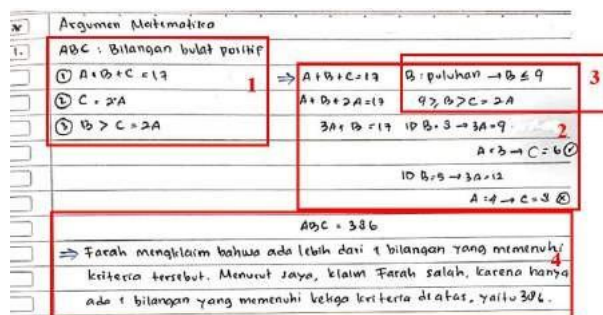 Argumen Matematika
1. ABC : Bilangan bulat positif
① A+B+C = 17
1
⇒ A+B+C = 17
B : puluhan → B ≤ 9
3
② C = 2A
A+B+2A = 17
9 ≥ B > C = 2A
③ B > C = 2A
3A+B = 17
ID B = 8 → 3A = 9
2
A = 3 → C = 6
ID B = 5 → 3A = 12
A = 4 → C = 8
ABC = 386
⇒ Farah mengklaim bahwa ada lebih dari 1 bilangan yang memenuhi
4
kriteria tersebut. Menurut saya, klaim Farah salah, karena hanya
ada 1 bilangan yang memenuhi ketiga kriteria diatas, yaitu 386.